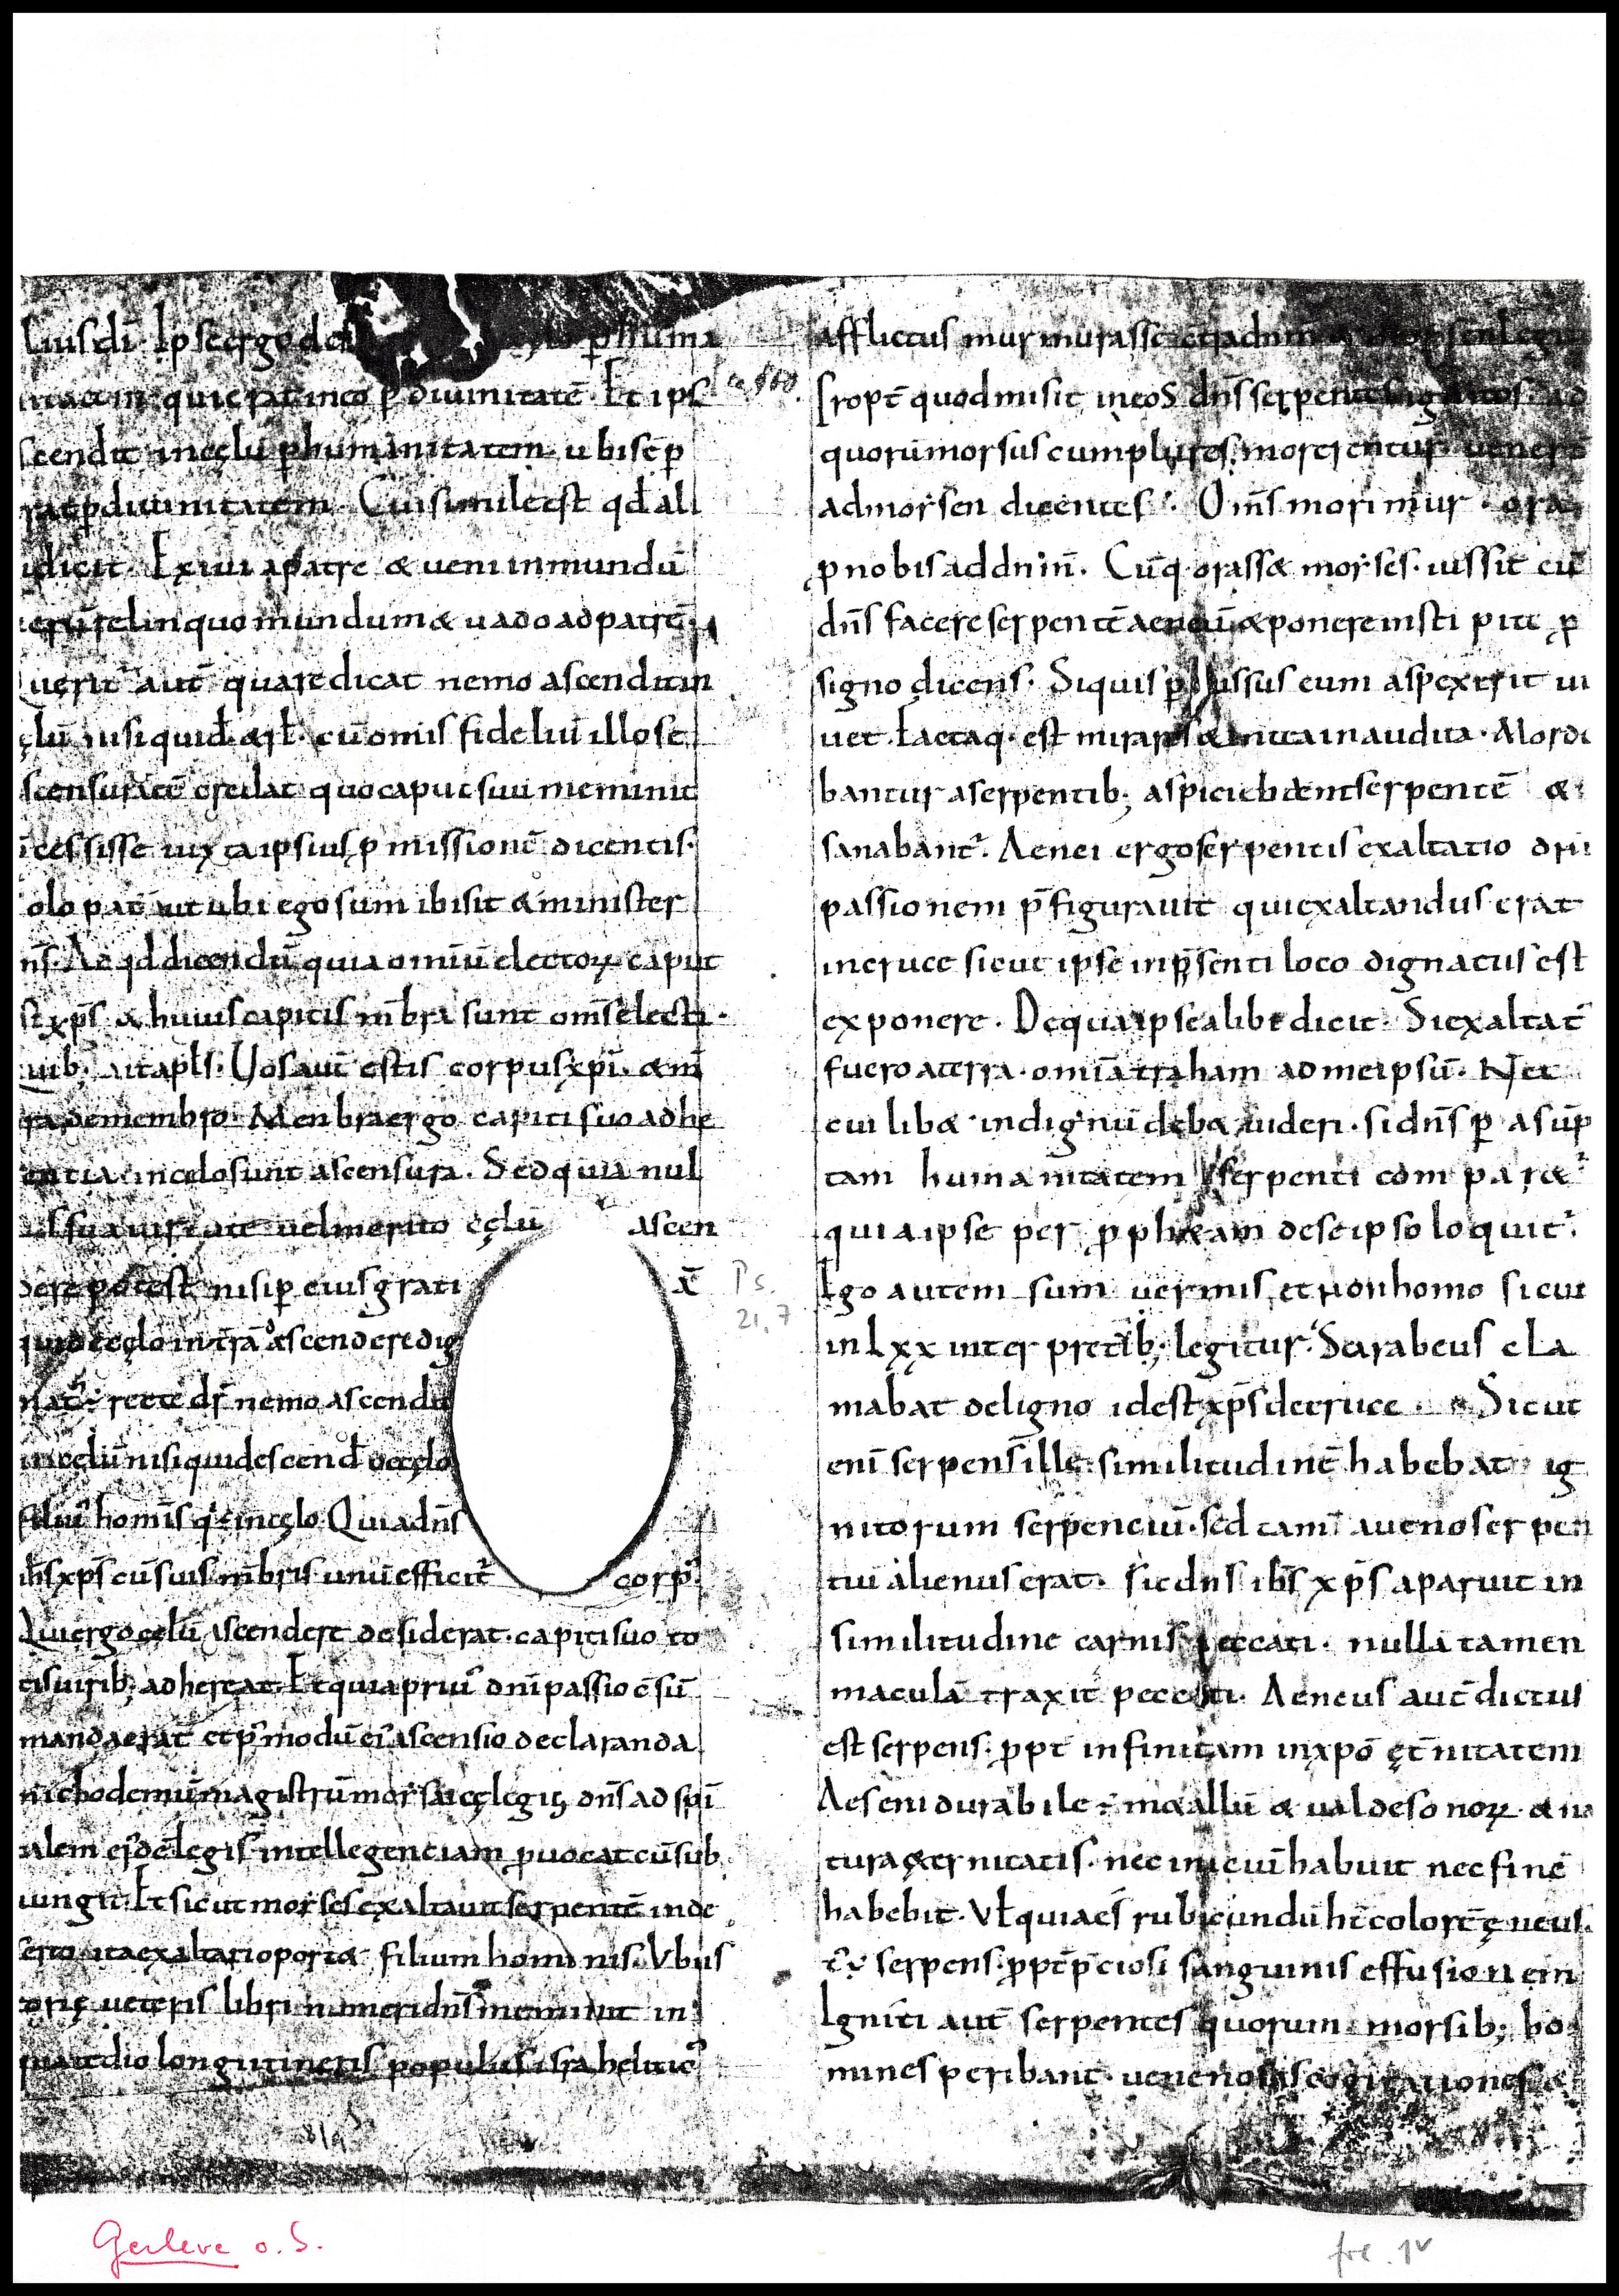 liusdi. Ipseergode phuma
quierat inceo p diuinitatē. Et ips
scendit inęęlū phumanitatem. ubisēp
rat pdiuinitatem. Cuisimileest qđ ali
dicit. Exiui apatre & ueni inmundū
erū relinquomundum& uadoadpatrē.
uerit aut̄ quaredicat nemo ascenditin
ęlū nisiquid. cū omis fideliū illose
scensurūtē credat quocaput suū meminit
cessisse iuxtaipsius pmissionē dicentis.
olo pat̄ ut ubi egosum ibisit &minister
ns̄. Ad qd dicendū quiaomiū electoꝝ caput
st xp̄s & huiuscapitis m̄bra sunt om̄selecti.
uib; aitapl̄s. Uosaut̄ estis corpusxpī. &m̄
ra demembro. Menbraergo capiti suo adhe
entia incelosunt ascensura. Sedquia nul
lussuauirtute uelmerito cęlū ascen
dere potest nisip eiusgrati ā
quidecęlo int̄rā ascenderedig
nat᷒. recte dr̄ nemo ascendit
incelū nisiquidescend̄ decęlo
filiu᷒ homīs q̇ ē incęlo. Quiadn̄s
ih̄s xp̄s cū suis m̄bris unū efficit᷒ corp᷒.
Quiergocelū ascendere desiderat. capitisuo to
tisuirib; adhereat. Etquiapriu᷒ dnīpassio ē sū
mandaerat etp᷒modū ei᷒ascensio declaranda
nichodemū magistrū morsaicęlegis dn̄s ad spī
alem ei᷒dēlegis intellegenciam puocat cū sub
iungit. Et sicut morses exaltauitserpentē inde
serto. itaexaltarioport& filium hominis. Vbi
orię ueteris libri numeridn̄s meminit in
quaredio longitineris populus israheliticus
afflictus murmurasse
Propt̄ quodmisit ineos dn̄s serpentes ignitos. ad
quorūmorsus cumplures morerentur. uener̄
admorsen dicentes. Om̄s morimur. ora
pnobis addnm̄. Cūq. orass& morses. iussit eū
dn̄s facereserpentē aeneū &ponereinstipite p
signo dicens. Siquis pcussus eum aspexerit ui
uet. Factaq. est mirares & inaudita. Morde
bantur aserpentib; aspiciebantserpentē &
sanabant᷒. Aenei ergoserpentis exaltatio dn̄i
passionem p̄figurauit quiexaltandus erat
incruce sicut ipse inp̄senti loco dignatus est
exponere. Dequaipsealibi dicit. Siexaltat᷒
fuero aterra. omīa traham ad meipsū. Nec
cui lib& indignū deb& uideri. sidn̄s p asūp
tam humanitatem serpenti compar&᷒
quiaipse per pph&am deseipsoloquit᷒.
Ego autem sum uermis, et nonhomo sicut
inlxx interpretib; legitur. Scarabeus cla
mabat deligno idest xp̄s decruce. Sicut
enī serpens ille similitudinē habebat ig
nitorum serpenciū. sed tam̄ auenoserpen
tiū alienuserat. sicdn̄s ih̄s xp̄s aparuit in
similitudine carnis peccati. nullā tamen
maculā traxit peccati. Aeneus aut̄ dictus
est serpens. ppt̄ infinitam inxpō ęt̄nitatem
Aes eni durabile ē m&allū & ualdesonoꝝ. & na
turaęternitatis. nec inicuī habuit nec finē
habebit. Vł quiaes̄ rubicundū h̄t colorē. ęneus
serpens. ppt̄p̄ciosi sanguinis effusionem
Igniti aut̄ serpentes quorum morsib; ho
mines peribant. uenenosascogitationes &
Ps.
21,7
Gerleve o. S.
fre. 1v